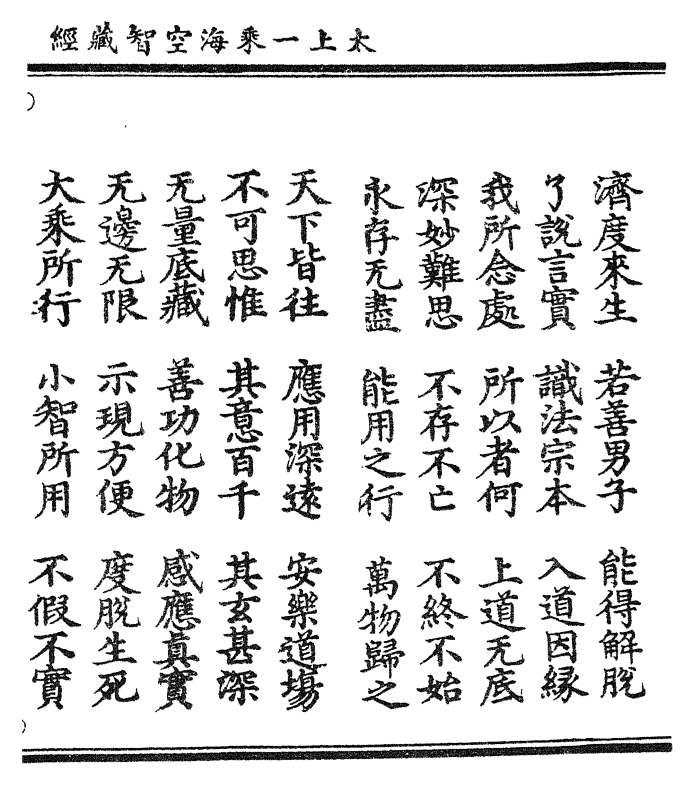 太上一乘海空智藏經
濟度來生 若善男子 能得解脫
了說言實 識法宗本 入道因緣
我所念處 所以者何 上道无底
深妙難思 不存不亡 不終不始
永存无盡 能用之行 萬物歸之
天下皆往 應用深遠 安樂道場
不可思惟 其意百千 其玄甚深
无量底藏 善功化物 感應真實
无邊无限 示現方便 度脫生死
大乘所行 小智所用 不假不實